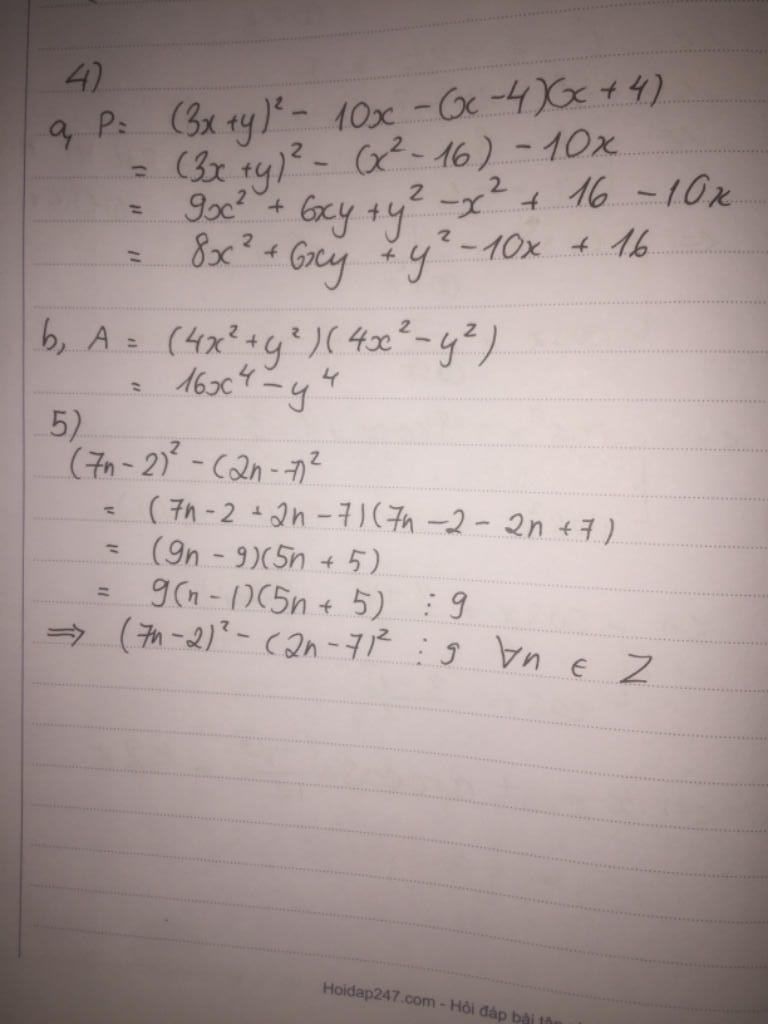 4)
a, P = (3x + y)² - 10x - (x - 4)(x + 4)
= (3x + y)² - (x² - 16) - 10x
= 9x² + 6xy + y² - x² + 16 - 10x
= 8x² + 6xy + y² - 10x + 16
b, A = (4x² + y²)(4x² - y²)
= 16x⁴ - y⁴
5)
(7n - 2)² - (2n - 7)²
= (7n - 2 + 2n - 7)(7n - 2 - 2n + 7)
= (9n - 9)(5n + 5)
= 9(n - 1)(5n + 5) ⋮ 9
⇒ (7n - 2)² - (2n - 7)² ⋮ 9 ∀n ∈ Z
Hoidap247.com - Hỏi đáp bài